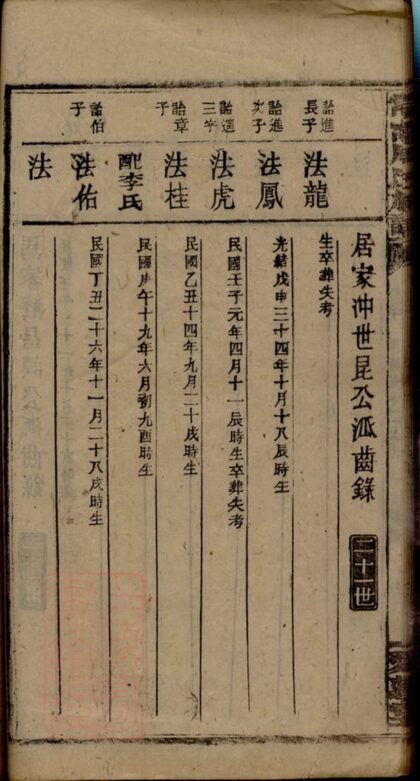 居家冲世昆公派齒錄
二十一世
詒進長子
法龍
生卒葬失考
詒進次子
法鳳
光緒戊申三十四年十月十八辰時生
詒進三子
法虎
民國壬子元年四月十一辰時生卒葬失考
詒章子
法桂
民國乙丑十四年九月二十戌時生
配李氏
民國庚午十九年六月初九酉時生
詒伯子
法佑
民國丁丑二十六年十一月二十八戌時生
法